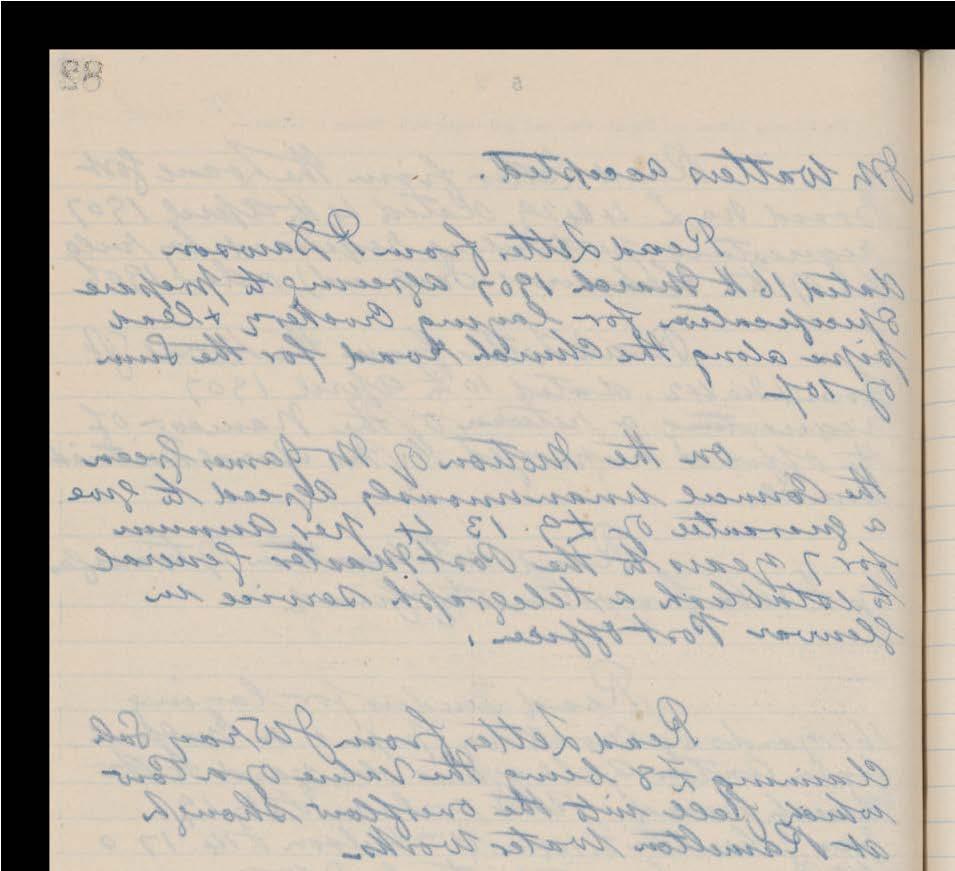 82
Mr Watters accepted.
Read Letter from R Dawson
dated 16th March 1907 agreeing to prepare
specification for laying Crockery & lead
pipe along the Church Road for the Sum
of 10/-
On the Motion of Mr James Green
the Council unanimously agreed to give
a guarantee of £9. 13. 4 per annum
for 7 years to the Post Master General
to establish a telegraph service in
Post Office.
Read Letter from J Wray Sub
Claiming £8 being the value of a Cow
which fell into the overflow
at Ramelton Water Works.